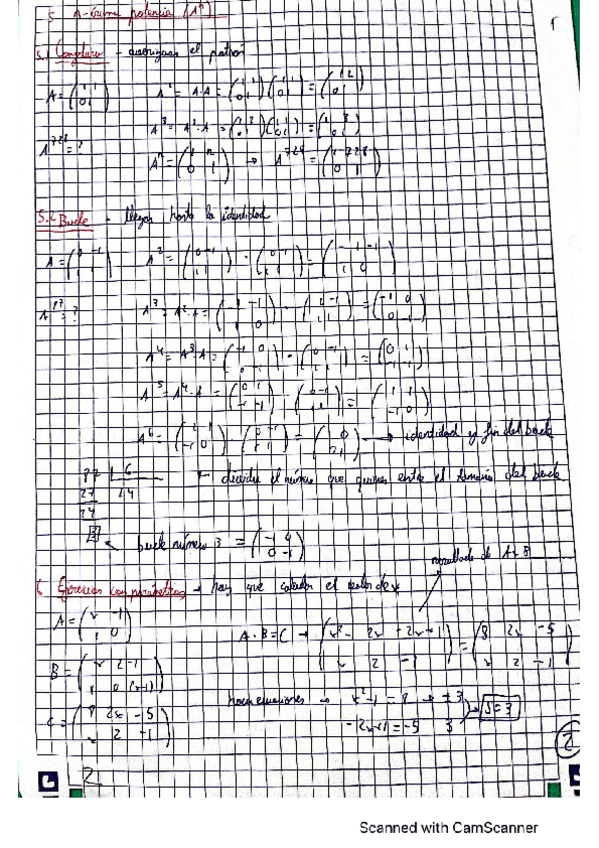 5 n-ésima potencia (Aⁿ)
5.1 Complejo - averiguar el patrón
A = (1 1 / 0 1) A² = A·A = (1 1 / 0 1)(1 1 / 0 1) = (1 2 / 0 1)
A³ = A²·A = (1 2 / 0 1)(1 1 / 0 1) = (1 3 / 0 1)
A⁷²⁸ = ? Aⁿ = (1 n / 0 1) → A⁷²⁸ = (1 728 / 0 1)
5.2 Bucle - llegar hasta la identidad
A = (0 -1 / 1 1) A² = (0 -1 / 1 1) · (0 -1 / 1 1) = (-1 -1 / 1 0)
A³ = A²·A = (-1 -1 / 1 0) · (0 -1 / 1 1) = (-1 0 / 0 -1)
A⁴ = A³·A = (-1 0 / 0 -1) · (0 -1 / 1 1) = (0 1 / -1 -1)
A⁵ = A⁴·A = (0 1 / -1 -1) · (0 -1 / 1 1) = (1 1 / -1 0)
A⁶ = (1 1 / -1 0) · (0 -1 / 1 1) = (1 0 / 0 1) → identidad y fin del bucle
6 ← dividir el número que quieres entre el tamaño del bucle
27 14
24
3 ← bucle número 3 = (-1 0 / 0 -1)
6 Ejercicios con parámetros → hay que calcular el valor de x
resultado de A x B
A = (x -1 / 1 0)
A·B = C → (x²-1 2x -2x+1 / x 2 -1) = (8 2x -5 / x 2 -1)
B = (x 2 -1 / 1 0 (x-1))
hacer ecuaciones → x²-1 = 8 → ±3
C = (8 2x -5 / x 2 -1)
-2x+1 = -5 3 S=3
2
Scanned with CamScanner